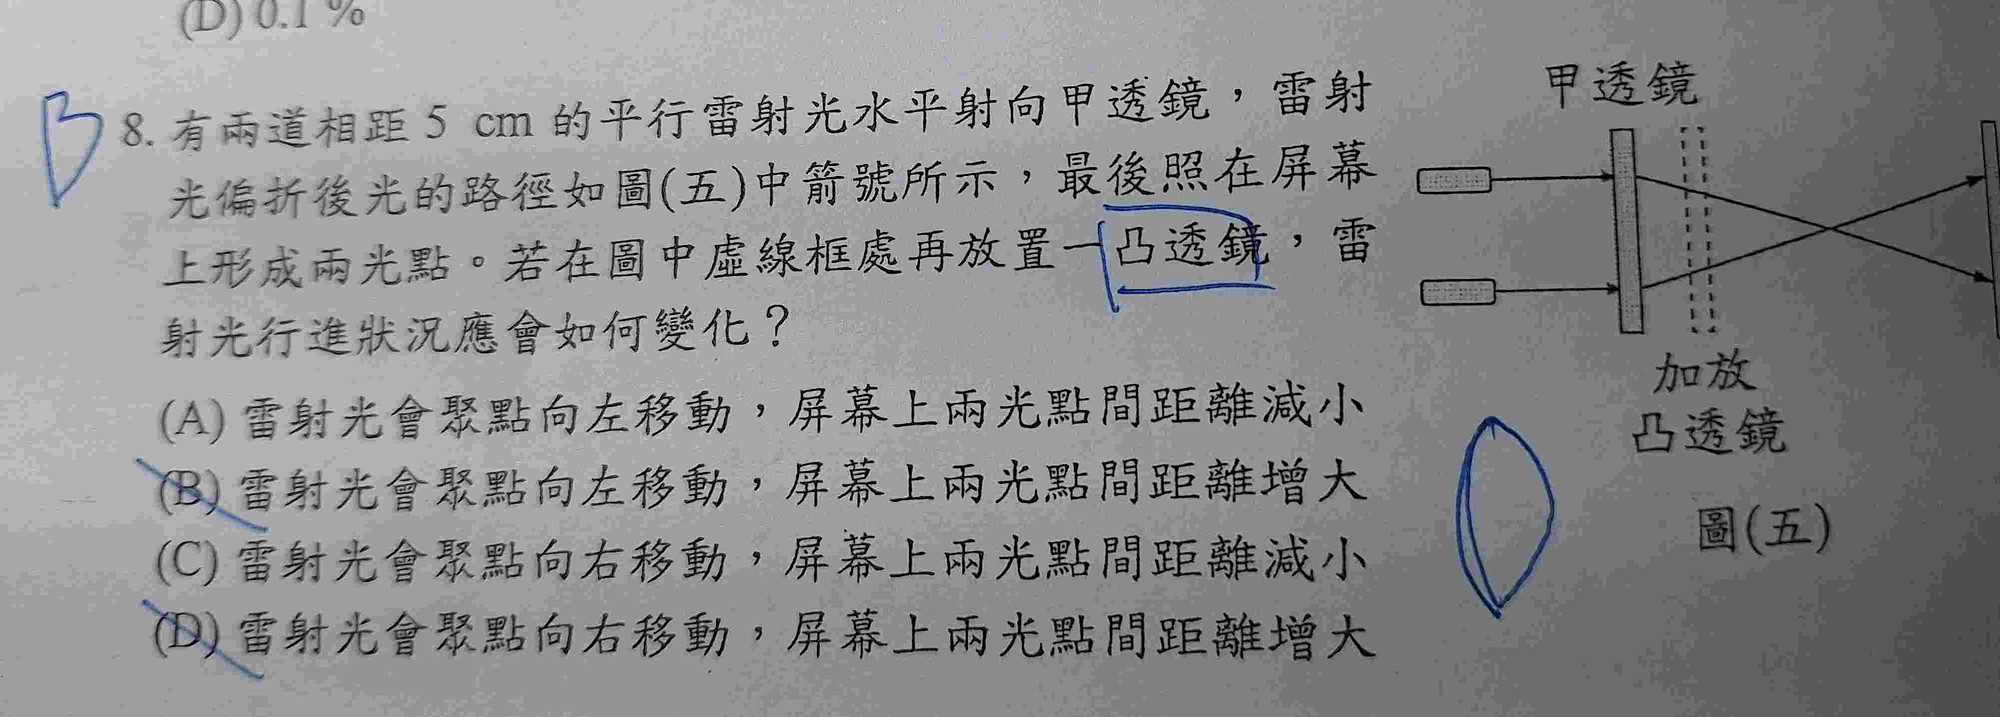 (D) 0.1 %
B
8. 有兩道相距 5 cm 的平行雷射光水平射向甲透鏡，雷射
光偏折後光的路徑如圖(五)中箭號所示，最後照在屏幕
上形成兩光點。若在圖中虛線框處再放置一凸透鏡，雷
射光行進狀況應會如何變化？
(A) 雷射光會聚點向左移動，屏幕上兩光點間距離減小
(B) 雷射光會聚點向左移動，屏幕上兩光點間距離增大
(C) 雷射光會聚點向右移動，屏幕上兩光點間距離減小
(D) 雷射光會聚點向右移動，屏幕上兩光點間距離增大
甲透鏡
加放
凸透鏡
圖(五)